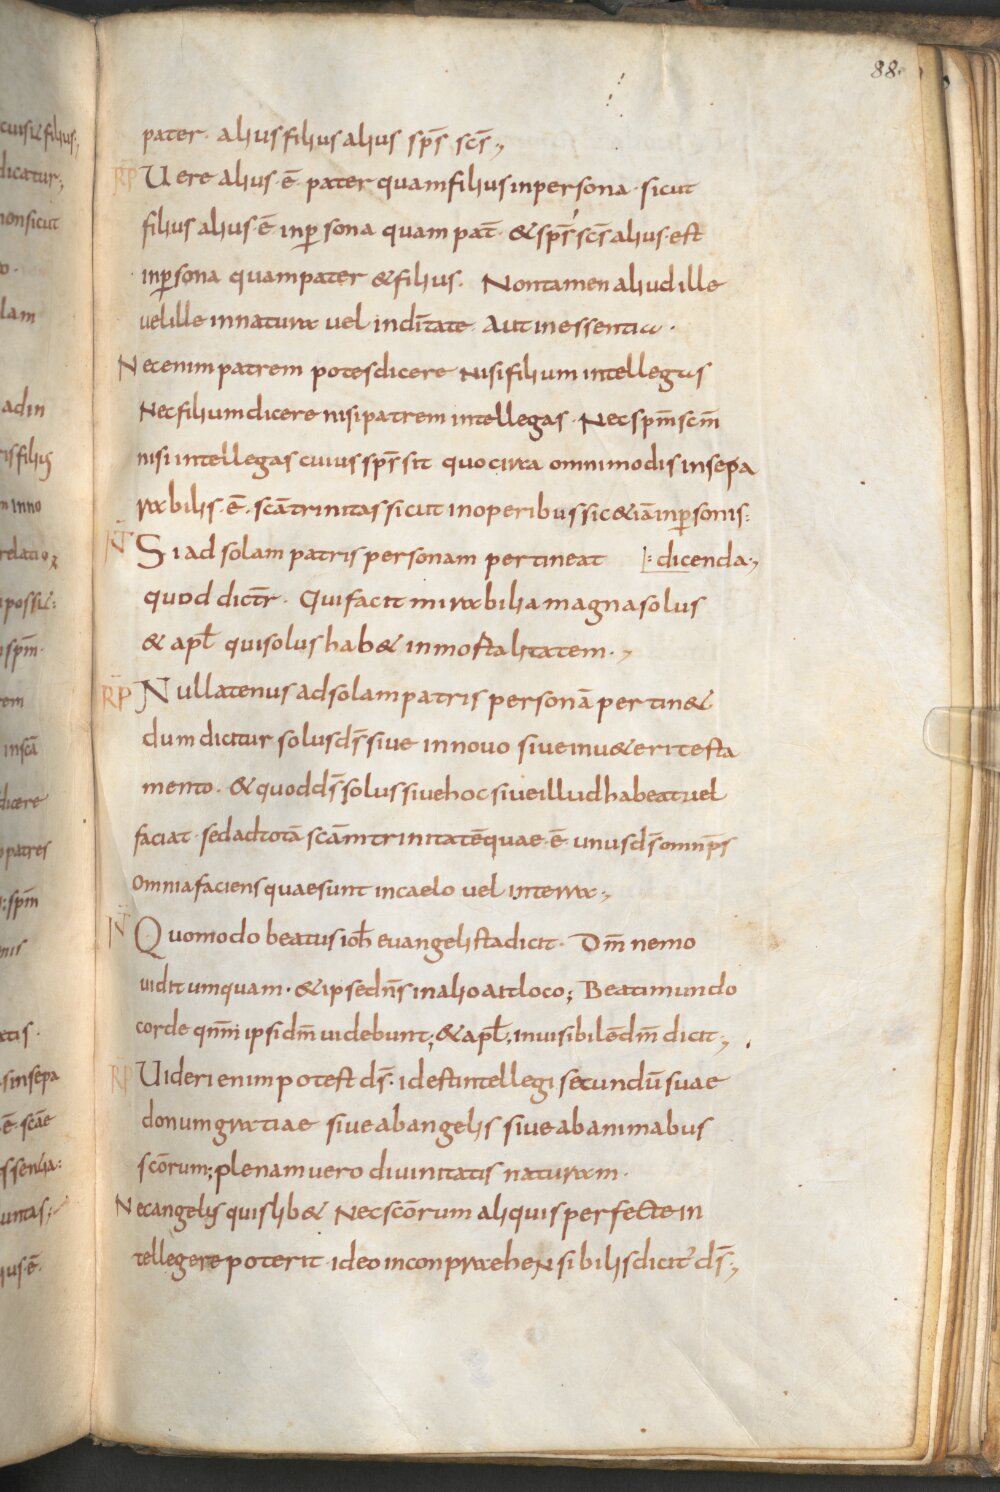 88.
pater · alius filius alius sp̄s sc̄s·,
R̄P Uere alius · ē · pater quam filius inpersona · sicut
filius alius · ē inꝑsona quam pat̄ · & sp̄s sc̄s alius · est
inꝑsona quam pater & filius · Non tamen aliud ille
uel ille in natura uel indīitate · Aut in essentia ·
Nec enim patrem potes dicere Nisi filium intellegas
Nec filium dicere nisi patrem intellegas · Nec sp̄m sc̄m
nisi intellegas cuius sp̄s sit quo circa omnimodis insepa
rabilis · ē · scā trinitas sicut in operibus sic & iā inꝑsonis :
N̄T Si ad solam patris personam pertineat dicenda·,
quod dict̄r · Qui facit mirabilia magna solus
& apƚ qui solus hab& inmortalitatem ·,
R̄P Nullatenus ad solam patris personā pertin&
dum dicitur solus d̄s siue in nouo siue in u&eri testa
mento · & quod d̄s solus siue hoc siue illud habeat uel
faciat · sed ad totā scām trinitatē quae · ē · unus d̄s omnip̄s
omnia faciens quae sunt in caelo uel in terra·,
N̄T Quomodo beatus ioħ euangelista dicit · Dm̄ nemo
uidit umquam · & ipse dn̄s in alio ait loco ; Beati mundo
corde qn̄m ipsi dm̄ uidebunt ; & apƚ ; inuisibilē dm̄ dicit·,
R̄P Uideri enim potest d̄s · id est intellegi secundū suae
donum gratiae siue ab angelis siue ab animabus
scōrum ; plenam uero diuinitatis naturam ·
Nec angelis quislib& Nec scōrum aliquis perfecte in
tellegere poterit · ideo inconpraehensibilis dicit̄ d̄s·,